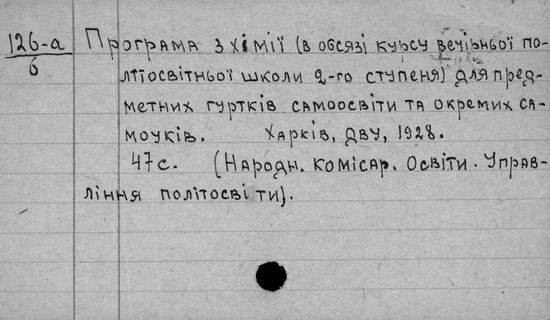 126-а
6
Програма з хімії (в обсязі курсу вечірньої по-
літосвітньої школи 2-го ступеня) для пред-
метних гуртків самоосвіти та окремих са-
моуків. Харків, ДВУ, 1928.
47с. (Народн. комісар. освіти. Управ-
ління політосвіти).